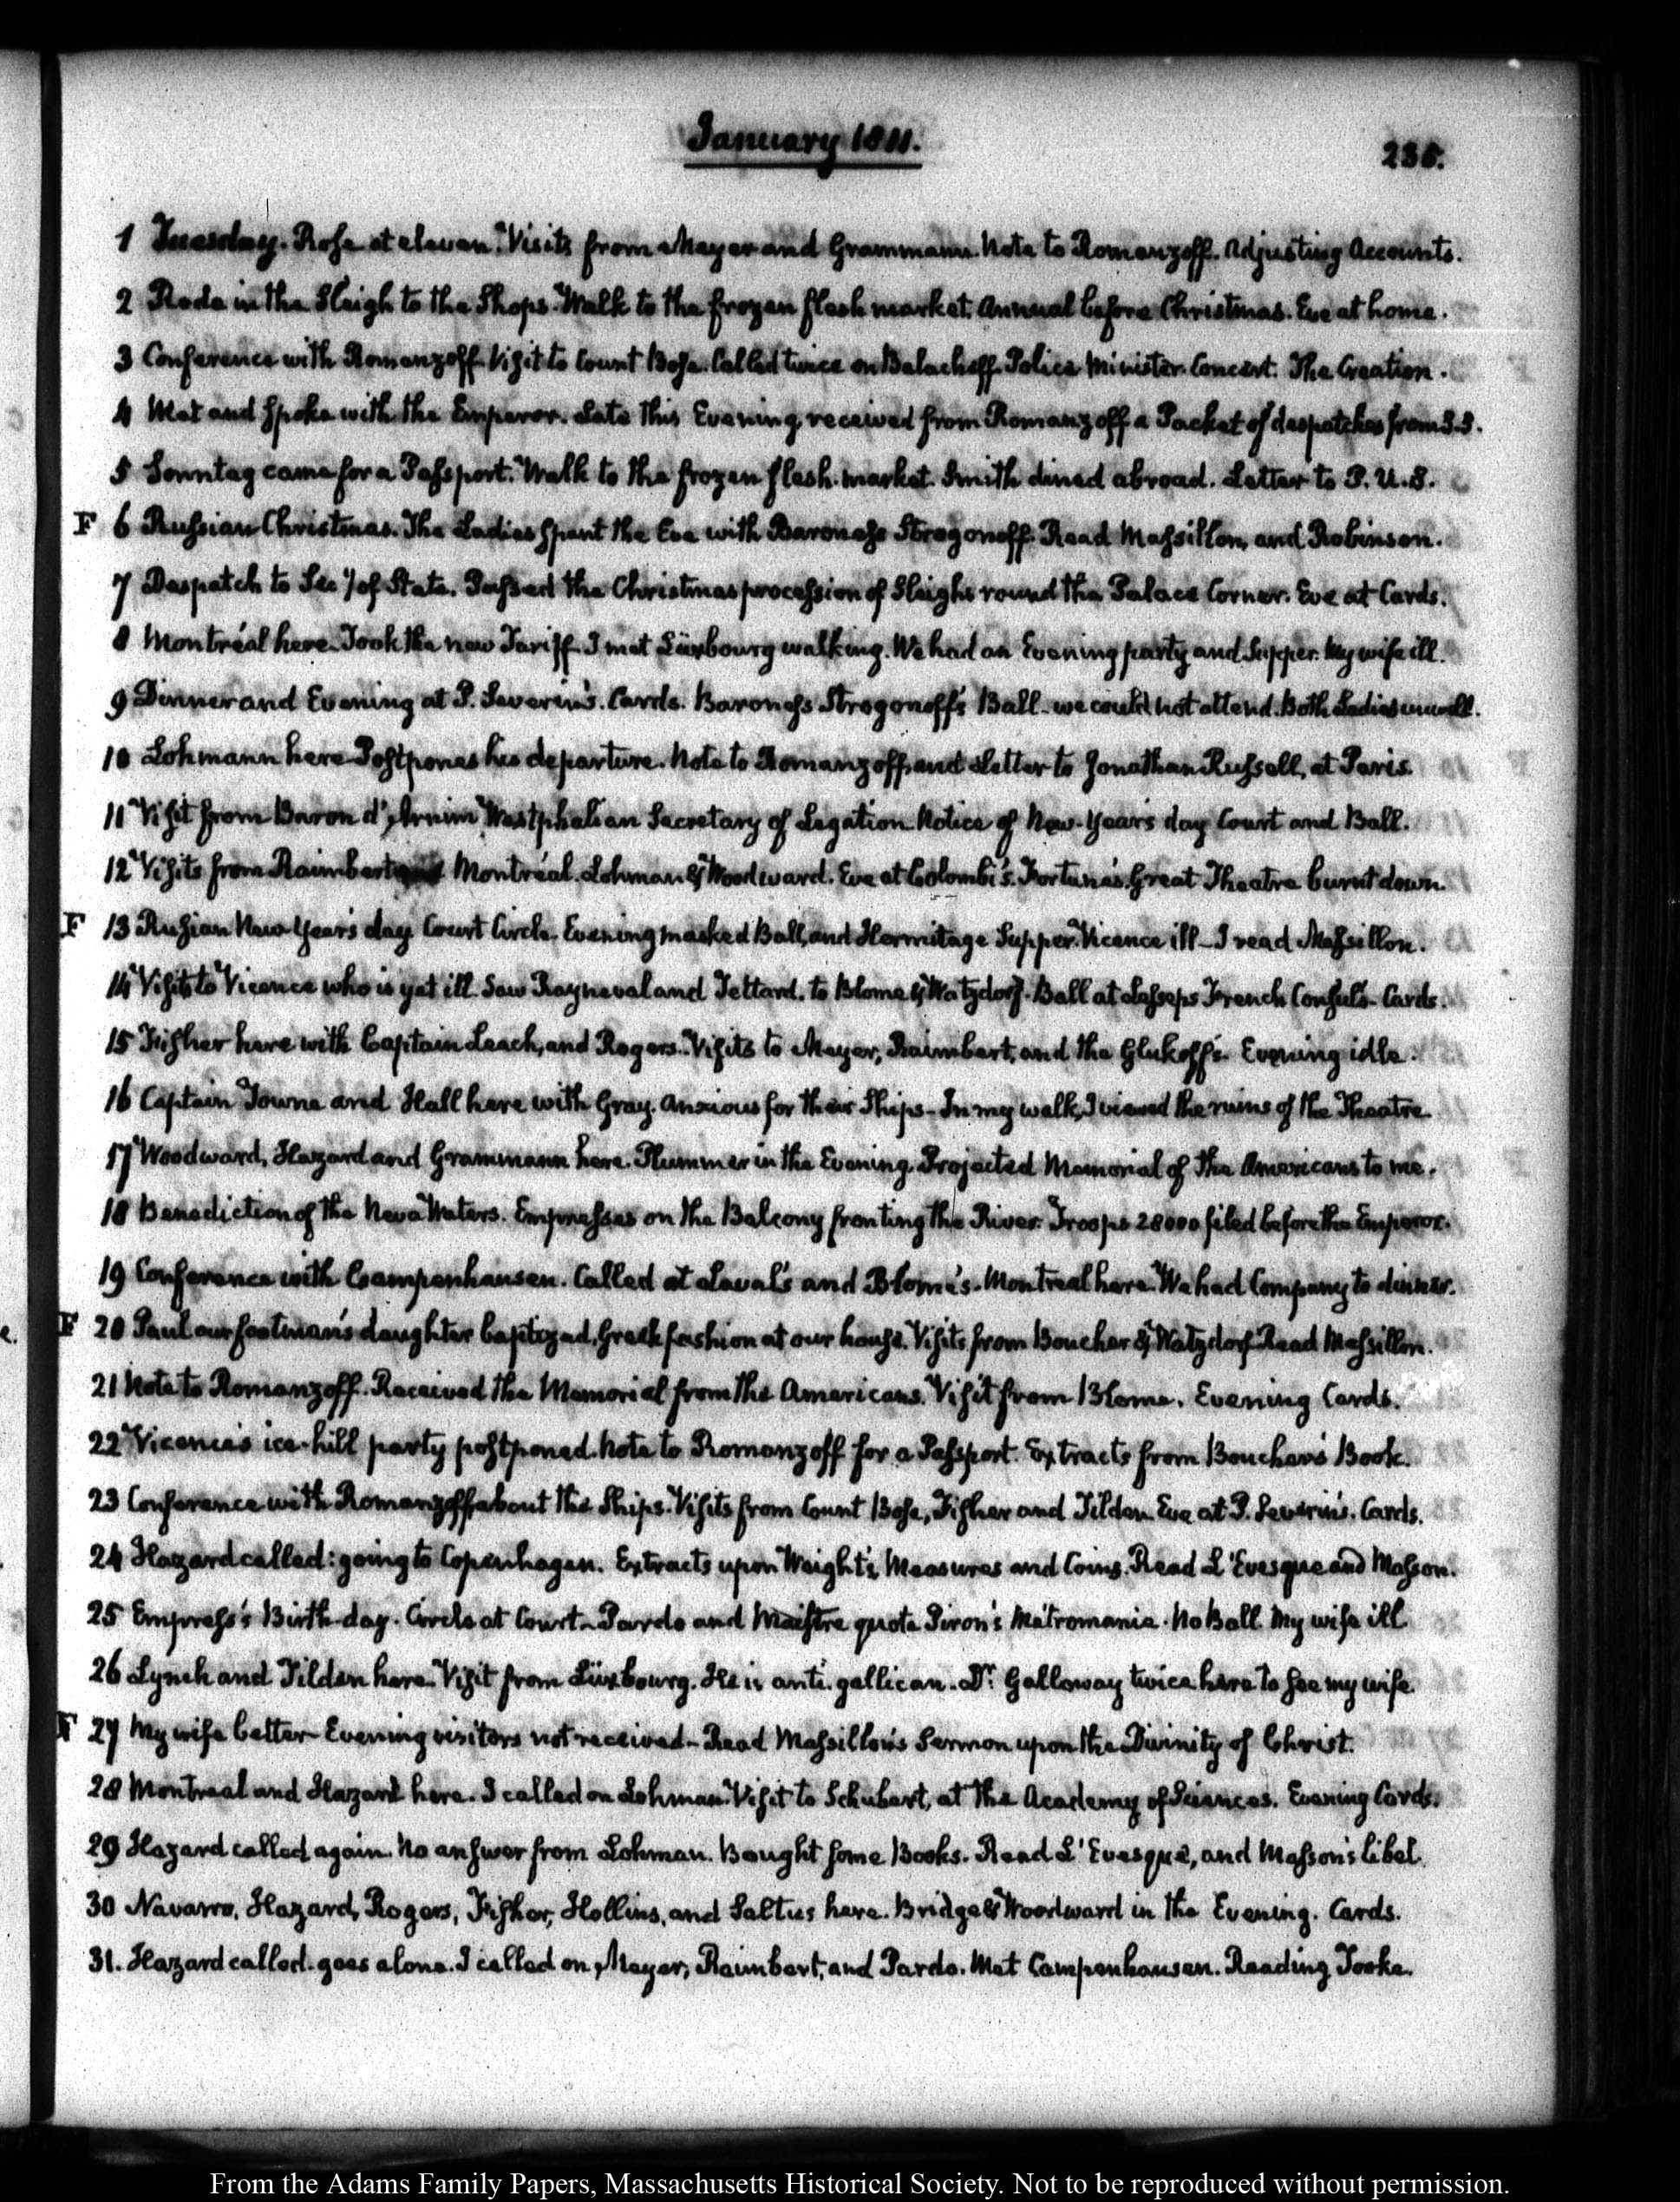 January 1811.
235.
1 Tuesday. Rose at eleven. Visits from Mayer and Grammann. Note to Romanzoff. Adjusting Accounts.
2 Rode in the Sleigh to the Shops. Walk to the frozen flesh market. Annual before Christmas. Eve at home.
3 Conference with Romanzoff. Visit to Count Bose. Called twice on Balacheff. Police Minister. Concert. The Creation.
4 Met and spoke with the Emperor. Late this Evening, received from Romanzoff a Packet of despatches from
5 Sonntag came for a Passport. Walk to the frozen flesh. market. Smith dined abroad. Letter to P. U. S.
F 6 Russian Christmas. The Ladies spent the Eve with Baroness Strogonoff. Read Massillon, and Robinson.
7 Despatch to Secy. of State. Passed the Christmas procession of Sleighs round the Palace Corner. Eve at Cards.
8 Montréal here. Took the new Tariff. I met Lüxbourg walking. We had an Evening party and Supper. My wife ill.
9 Dinner and Evening at P. Severin's. Cards. Baroness Strogonoff's Ball. we could not attend. Both Ladies unwell.
10 Lohmann here. Postpones his departure. Note to Romanzoff, and Letter to Jonathan Russell, at Paris.
11 Visit from Baron d'Arnim Westphalian Secretary of Legation. Notice of New-Years day Court and Ball.
12 Visits from Raimbert Montréal. Lohman & Woodward. Eve at Colombi's. Fortuna's. Great Theatre burnt down.
F 13 Russian New-Year's day. Court Circle. Evening masked Ball, and Hermitage Supper. Vicence ill—I read Massillon.
14 Visits to Vicence who is yet ill. Saw Rayneval and Tettard. to Blome & Watzdorf. Ball at Lesseps French Consul's. Cards.
15 Fisher here with Captain Leach, and Rogers. Visits to Meyer, Raimbert, and the Glukoff's. Evening idle.
16 Captain Towne and Hall here with Gray. Anxious for their Ships—In my walk, I viewed the ruins of the Theatre.
17 Woodward, Hazard and Grammann here. Plummer in the Evening. Projected Memorial of the Americans to me.
18 Benediction of the Neva Waters. Empresses on the Balcony fronting the River. Troops 28000 filed before the Emperor.
19 Conference with Campenhausen. Called at Laval's and Blome's. Montreal here. We had Company to dinner.
F 20 Paul our footman's daughter baptized, Greek fashion at our house. Visits from Boucher & Watzdorf. Read Massillon.
21 Note to Romanzoff. Received the Memorial from the Americans. Visit from Blome. Evening Cards.
22 Vicence's ice-hill party postponed. Note to Romanzoff for a Passport. Extracts from Boucher's Book.
23 Conference with Romanzoff about the Ships. Visits from Count Bose, Fisher and Tilden. Eve at P. Severin's. Cards.
24 Hazard called: going to Copenhagen. Extracts upon Weights, Measures and Coins. Read L'Evesque and Masson.
25 Empress's Birth-day. Circle at Court—Pardo and Maistre quote Piron's Métromanie. No Ball. My wife ill
26 Lynch and Tilden here. Visit from Lüxbourg. He is anti-gallican. Dr. Galloway twice here to see my wife.
F 27 My wife better—Evening visitors not received—Read Massillon's Sermon upon the Divinity of Christ.
28 Montreal and Hazard here. I called on Lohman. Visit to Schubert, at the Academy of Sciences. Evening Cards.
29 Hazard called again. No answer from Lohman. Bought some Books. Read L'Evesque, and Masson's libel.
30 Navarro, Hazard, Rogers, Fisher, Hollins, and Saltus here. Bridge & Woodward in the Evening. Cards.
31. Hazard called. goes alone. I called on Meyer, Raimbert, and Pardo. Met Campenhausen. Reading Tooke.
From the Adams Family Papers, Massachusetts Historical Society. Not to be reproduced without permission.